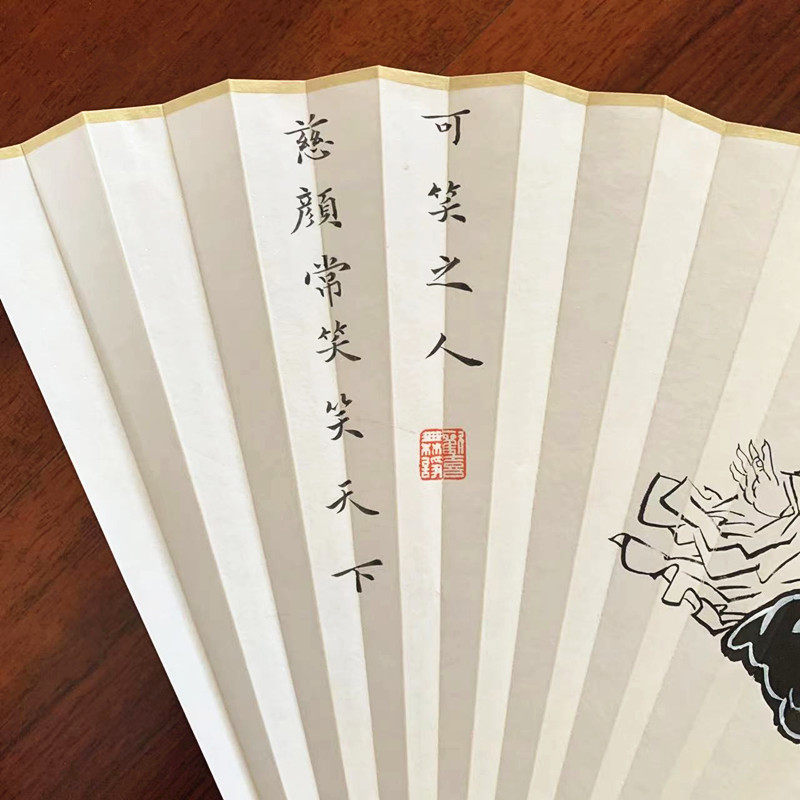 慈顔常笑笑天下
可笑之人